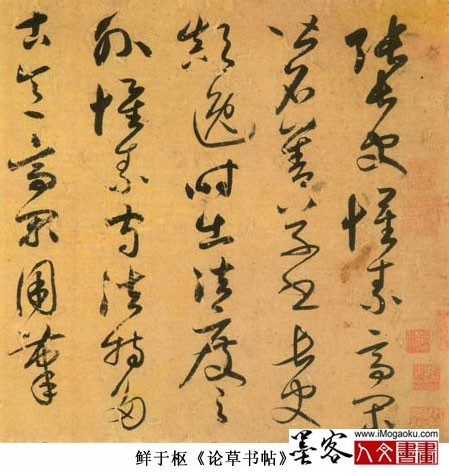 張長史懷素高閑
皆名善草書長史
顛逸時出法度之
外懷素守法特多
古意高閑用筆
鲜于枢《论草书帖》
www.iMogaoku.com
墨客
人文書畫